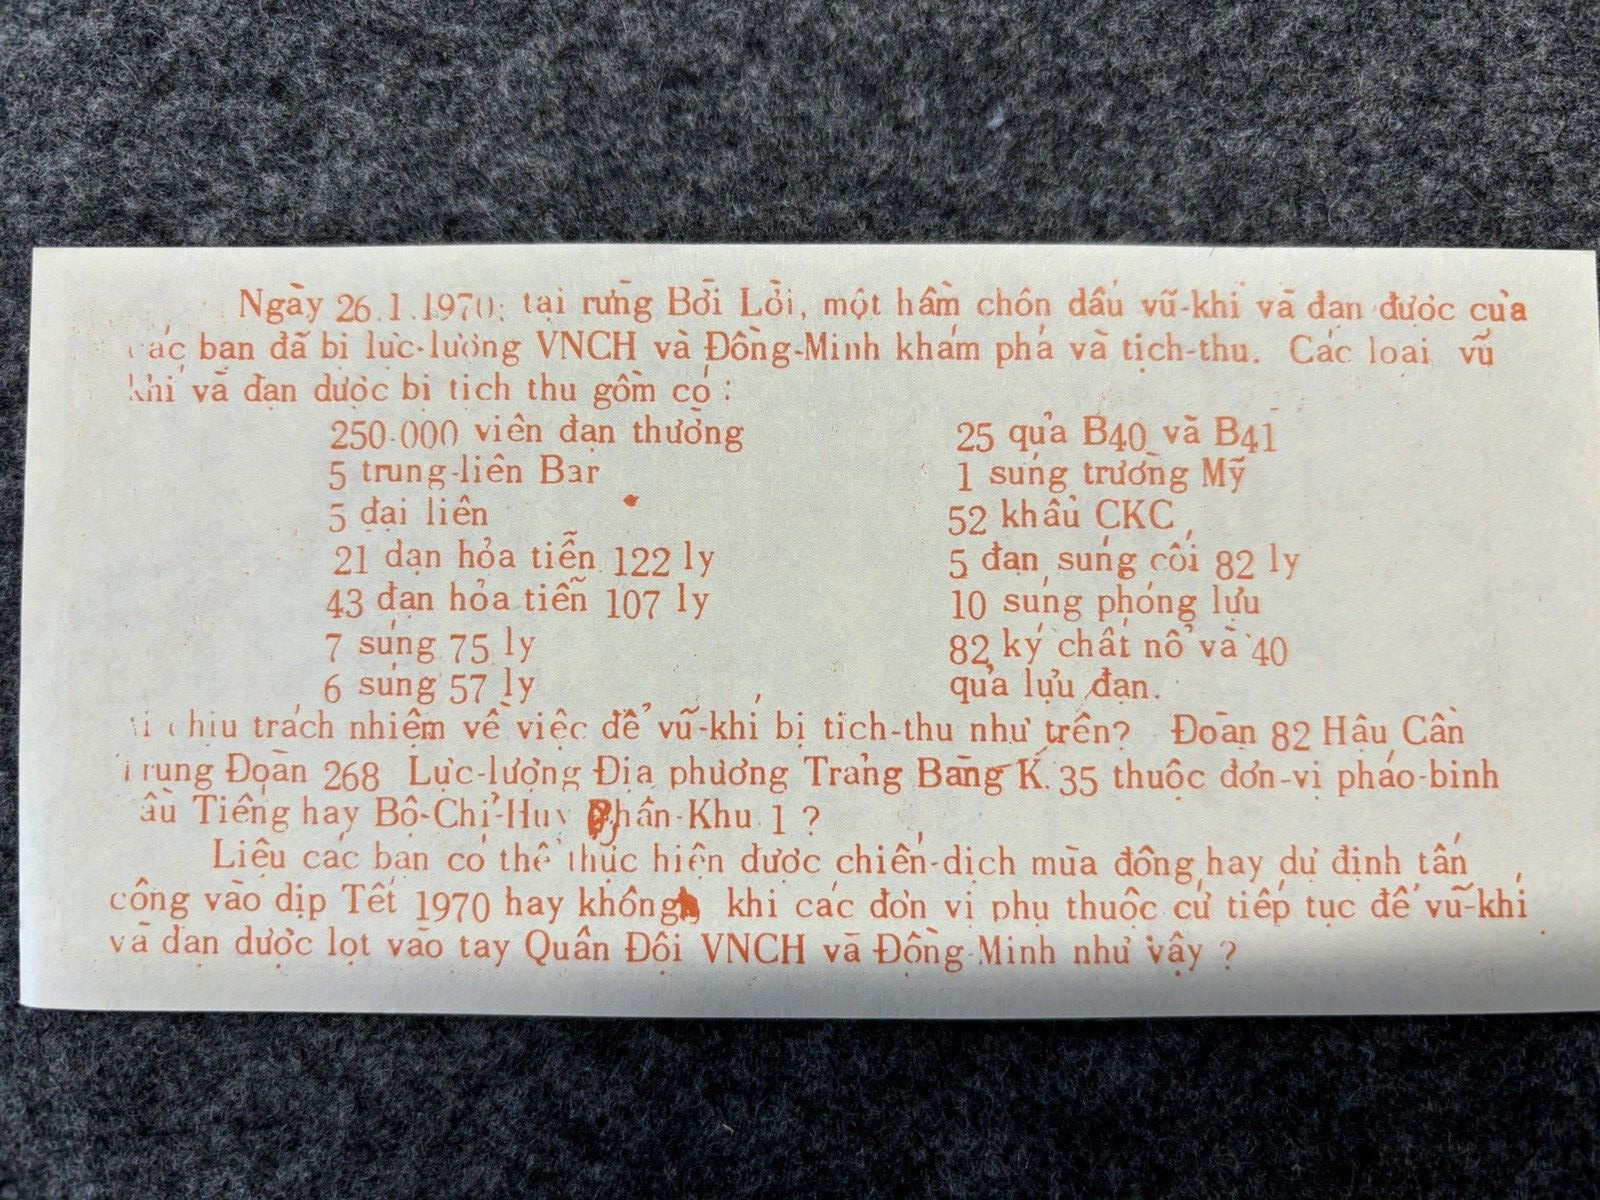 Ngày 26.1.1970, tại rừng Bời Lời, một hầm chôn dấu vũ-khí và đạn dược của
các bạn đã bị lực-lượng VNCH và Đồng-Minh khám phá và tịch-thu. Các loại vũ
khí và đạn dược bị tịch thu gồm có :
250.000 viên đạn thường 25 quả B40 và B41
5 trung-liên Bar 1 súng trường Mỹ
5 đại liên 52 khẩu CKC
21 đạn hỏa tiễn 122 ly 5 đạn súng cối 82 ly
43 đạn hỏa tiễn 107 ly 10 súng phóng lựu
7 súng 75 ly 82 ký chất nổ và 40
6 súng 57 ly quả lựu đạn.
Ai chịu trách nhiệm về việc để vũ-khí bị tịch-thu như trên? Đoàn 82 Hậu Cần
Trung Đoàn 268 Lực-lượng Địa phương Trảng Bàng K.35 thuộc đơn-vị pháo-binh
Dầu Tiếng hay Bộ-Chỉ-Huy Phân-Khu 1 ?
Liệu các bạn có thể thực hiện được chiến-dịch mùa đông hay dự định tấn
công vào dịp Tết 1970 hay không, khi các đơn vị phụ thuộc cứ tiếp tục để vũ-khí
và đạn dược lọt vào tay Quân Đội VNCH và Đồng-Minh như vậy ?